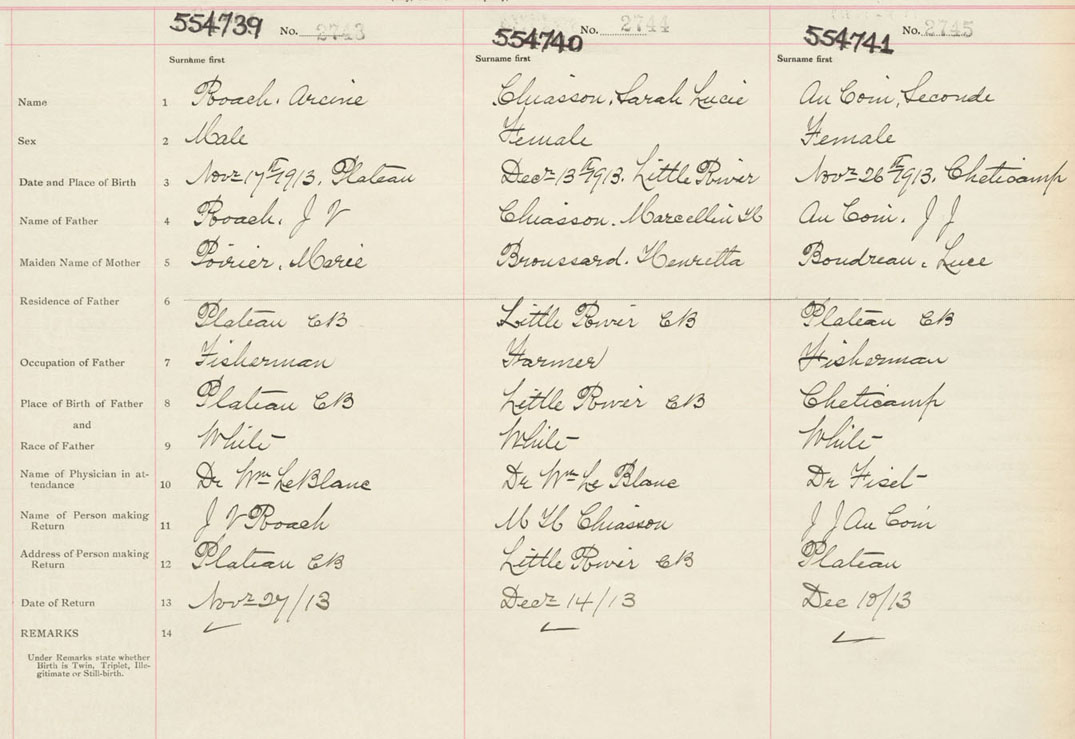 554739 No. 2743 554740 No. 2744 554741 No. 2745
Surname first Surname first Surname first
Name 1 Roach, Arcine Chiasson, Sarah Lucie Au Coin, Seconde
Sex 2 Male Female Female
Date and Place of Birth 3 Novr 17th 1913. Plateau Decr 13th 1913. Little River Novr 26th 1913. Cheticamp
Name of Father 4 Roach, J V Chiasson. Marcellin H Au Coin, J J
Maiden Name of Mother 5 Poirier, Marie Broussard. Henrietta Boudreau, Luce
Residence of Father 6
Plateau CB Little River CB Plateau CB
Occupation of Father 7 Fisherman Farmer Fisherman
Place of Birth of Father 8 Plateau CB Little River CB Cheticamp
and
Race of Father 9 White White White
Name of Physician in at-
tendance 10 Dr Wm LeBlanc Dr Wm Le Blanc Dr Fiset
Name of Person making
Return 11 J V Roach M H Chiasson J J Au Coin
Address of Person making
Return 12 Plateau CB Little River CB Plateau
Date of Return 13 Novr 27/13 Decr 14/13 Dec 10/13
REMARKS 14
Under Remarks state whether
Birth is Twin, Triplet, Ille-
gitimate or Still-birth.